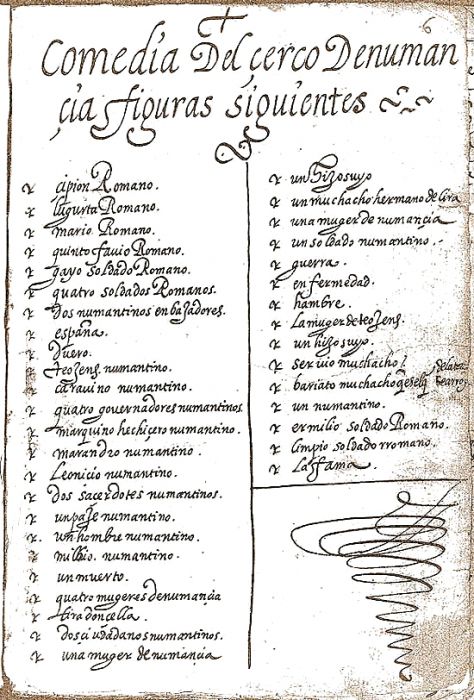 6
Comedia Del çerco Denuman
çia figuras siguientes
çipion Romano.
Iugurta Romano.
mario Romano.
quinto favio Romano.
gayo soldado Romano.
quatro soldados Romanos.
Dos numantinos enbajadores.
españa.
Duero.
teogenes numantino.
caravino numantino.
quatro governadores numantinos
marquino hechiçero numantino.
marandro numantino.
Leonicio numantino.
Dos sacerdotes numantinos.
un paje numantino.
un hombre numantino.
milbio. numantino.
un muerto.
quatro mugeres denumançia
lira donçella.
dos ciudadanos numantinos.
una muger de numancia
un Hijo suyo
un muchacho hermano de lira
una muger de numançia
un soldado numantino.
guerra.
enfermedad.
hambre.
La muger de
un hijo suyo.
ser vio muchacho
bariato muchacho
un numantino.
ermilio soldado Romano.
limpio soldado rromano.
La fama.